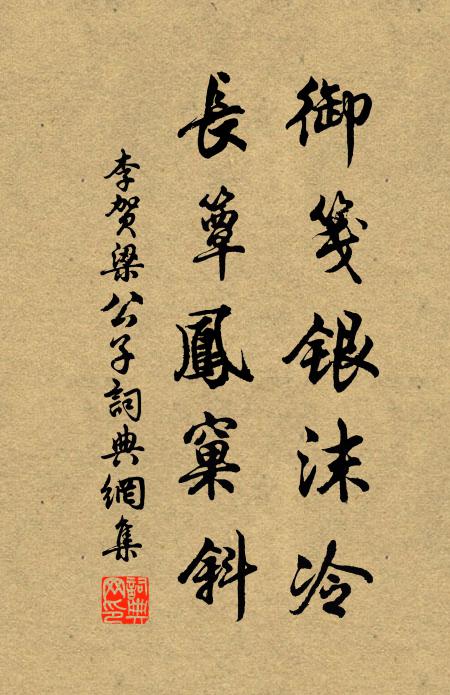 御箋銀沫冷
長簟鳳窠斜
李賀梁公子詞典網集
詞典網印